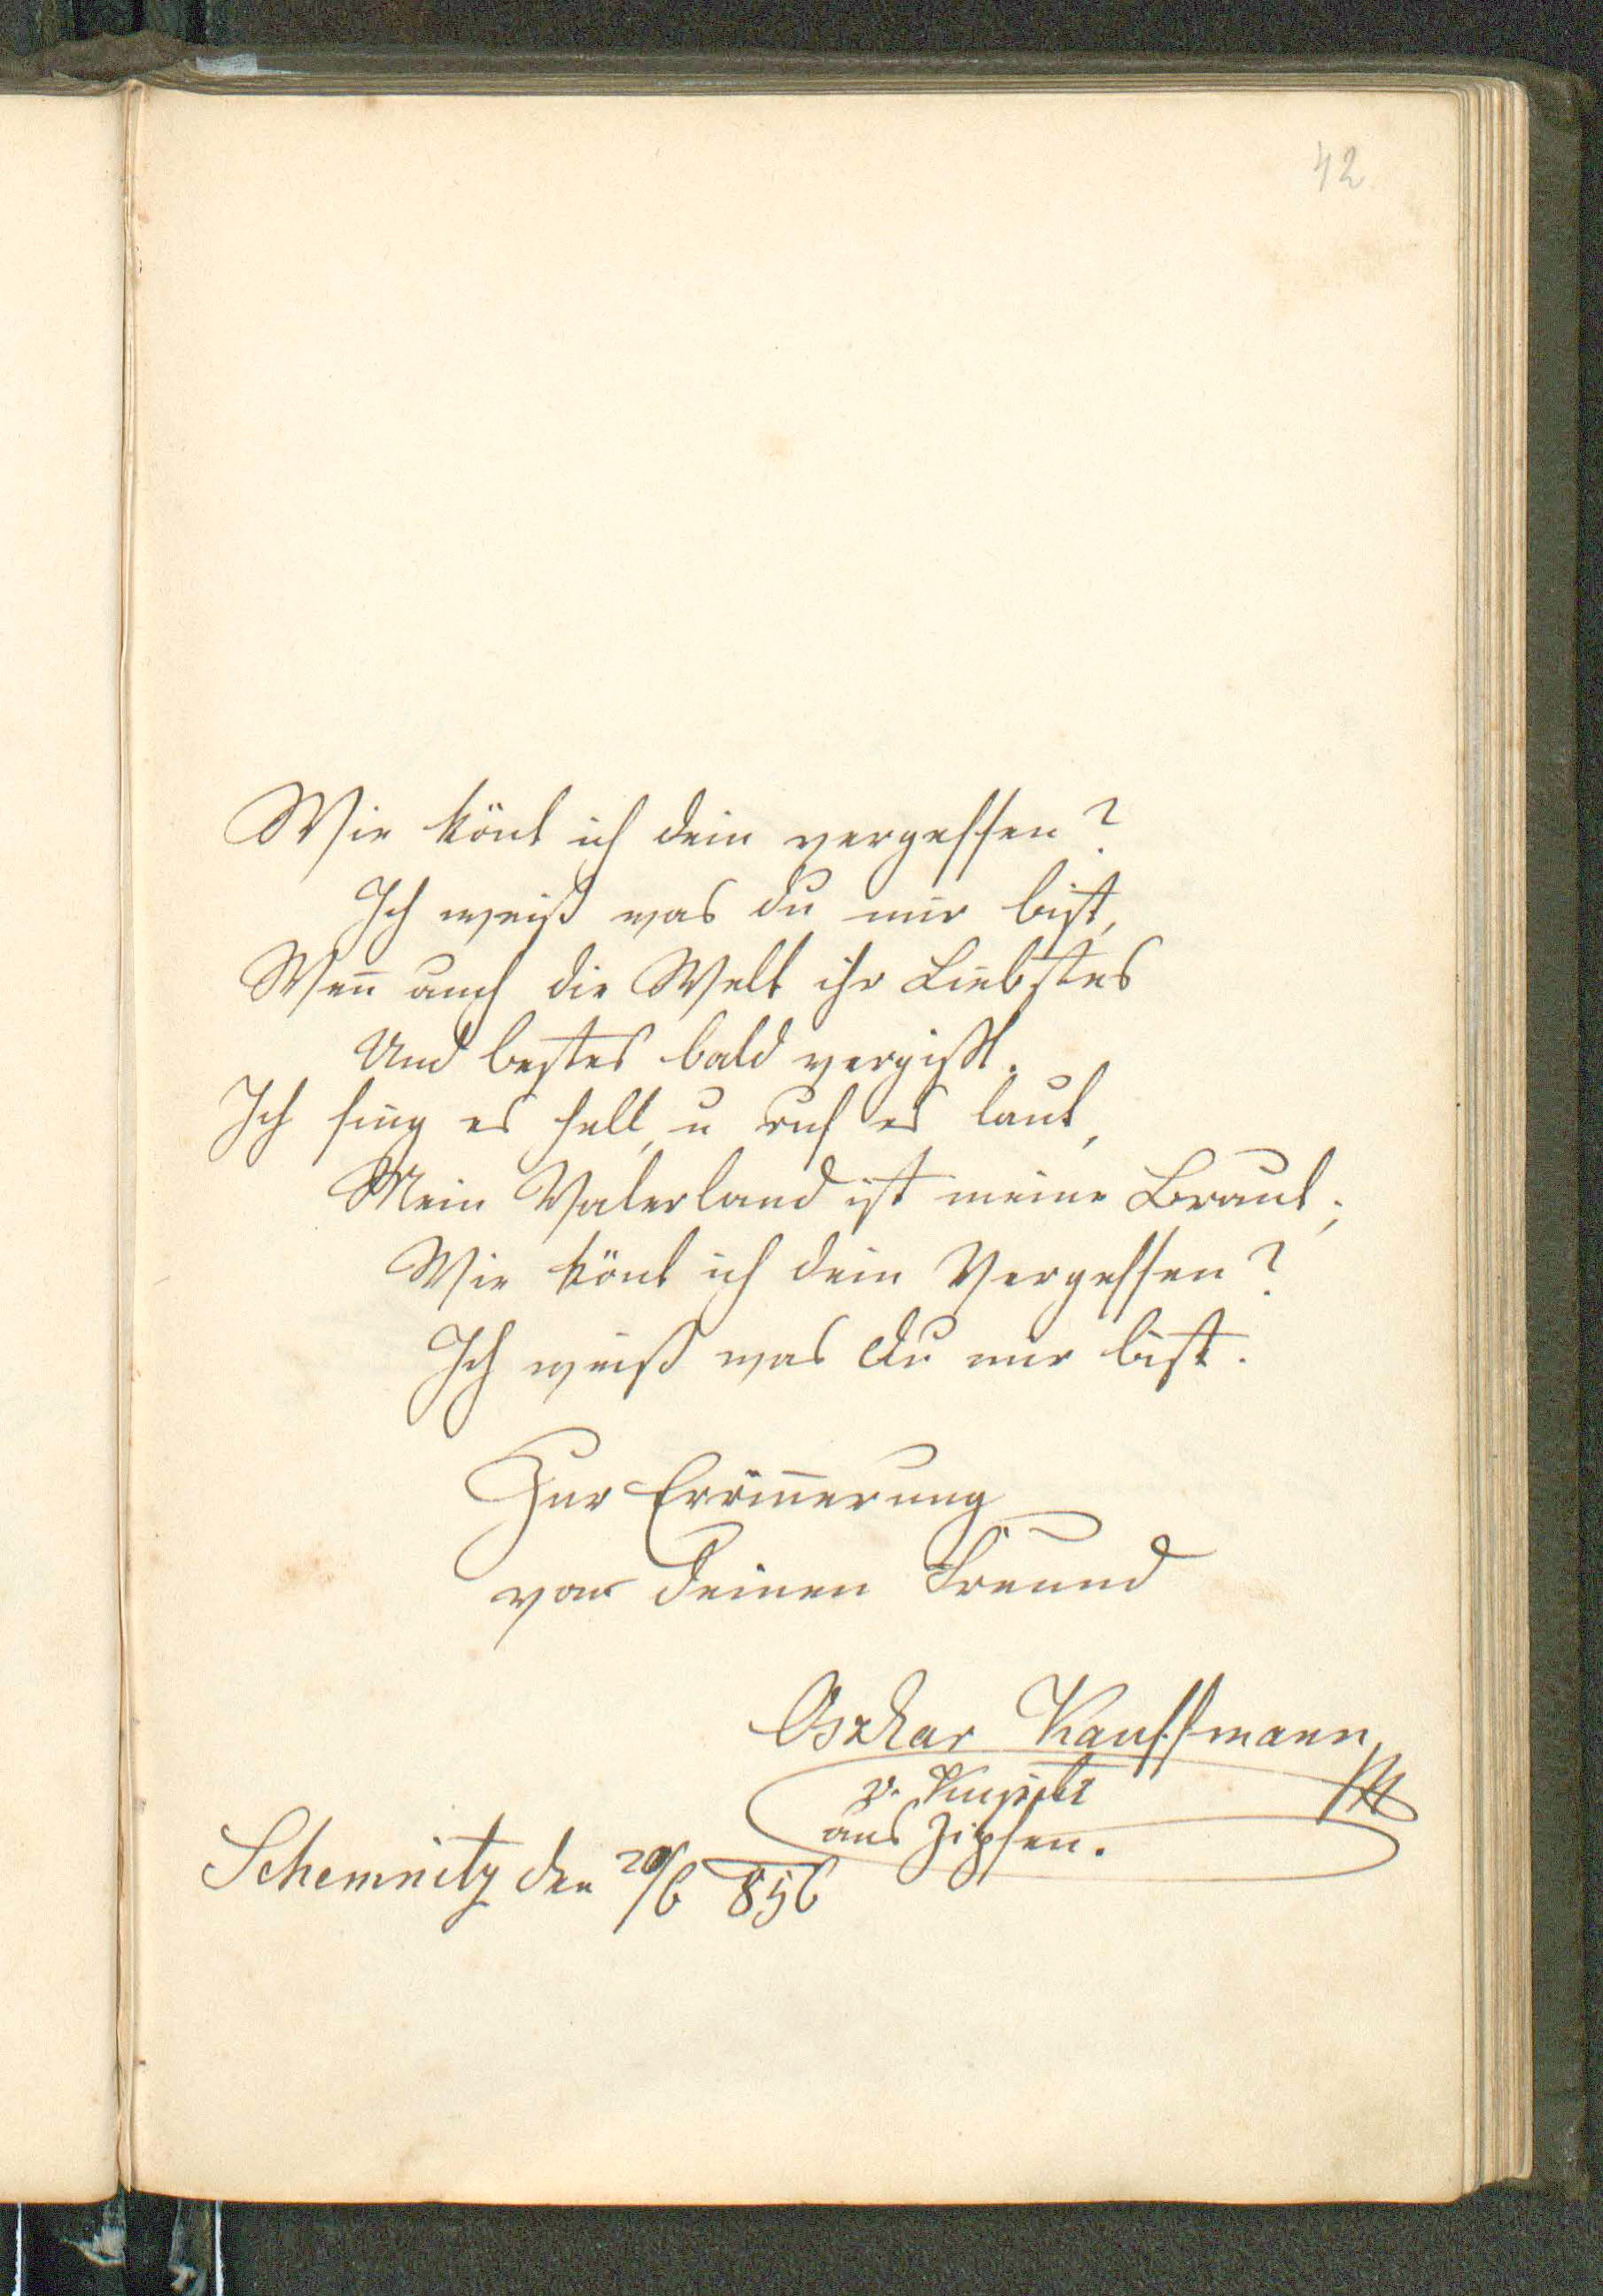 42
Wie könt ich dein vergessen?
Ich weiß was du mir bist,
Wen̄ auch die Welt ihr Liebstes
Und bestes bald vergißt.
Ich sing es hell, u ruf es laut,
Mein Vaterland ist meine Braut;
Wie könt ich dein Vergessen?
Ich weiß was du mir bist.
Zur Erin̄erung
von deinen Freund
Oszkar Kauffmann
v.
aus Zipsen.
Schemnitz den 20/6 856